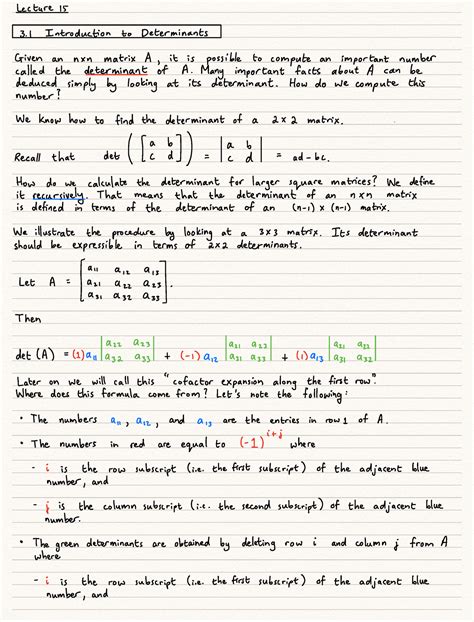 Lecture 15
3.1 Introduction to Determinants
Given an n×n matrix A, it is possible to compute an important number
called the determinant of A. Many important facts about A can be
deduced simply by looking at its determinant. How do we compute this
number?
We know how to find the determinant of a 2×2 matrix.
Recall that det ([a b; c d]) = |a b; c d| = ad - bc.
How do we calculate the determinant for larger square matrices? We define
it recursively. That means that the determinant of an n×n matrix
is defined in terms of the determinant of an (n-1) × (n-1) matrix.
We illustrate the procedure by looking at a 3×3 matrix. Its determinant
should be expressible in terms of 2×2 determinants.
Let A = [a₁₁ a₁₂ a₁₃; a₂₁ a₂₂ a₂₃; a₃₁ a₃₂ a₃₃].
Then
det (A) = (1) a₁₁ |a₂₂ a₂₃; a₃₂ a₃₃| + (-1) a₁₂ |a₂₁ a₂₃; a₃₁ a₃₃| + (1) a₁₃ |a₂₁ a₂₂; a₃₁ a₃₂|
Later on we will call this "cofactor expansion along the first row".
Where does this formula come from? Let's note the following:
• The numbers a₁₁, a₁₂, and a₁₃ are the entries in row 1 of A.
• The numbers in red are equal to (-1)^(i+j) where
- i is the row subscript (i.e. the first subscript) of the adjacent blue
number, and
- j is the column subscript (i.e. the second subscript) of the adjacent blue
number.
• The green determinants are obtained by deleting row i and column j from A
where
- i is the row subscript (i.e. the first subscript) of the adjacent blue
number, and